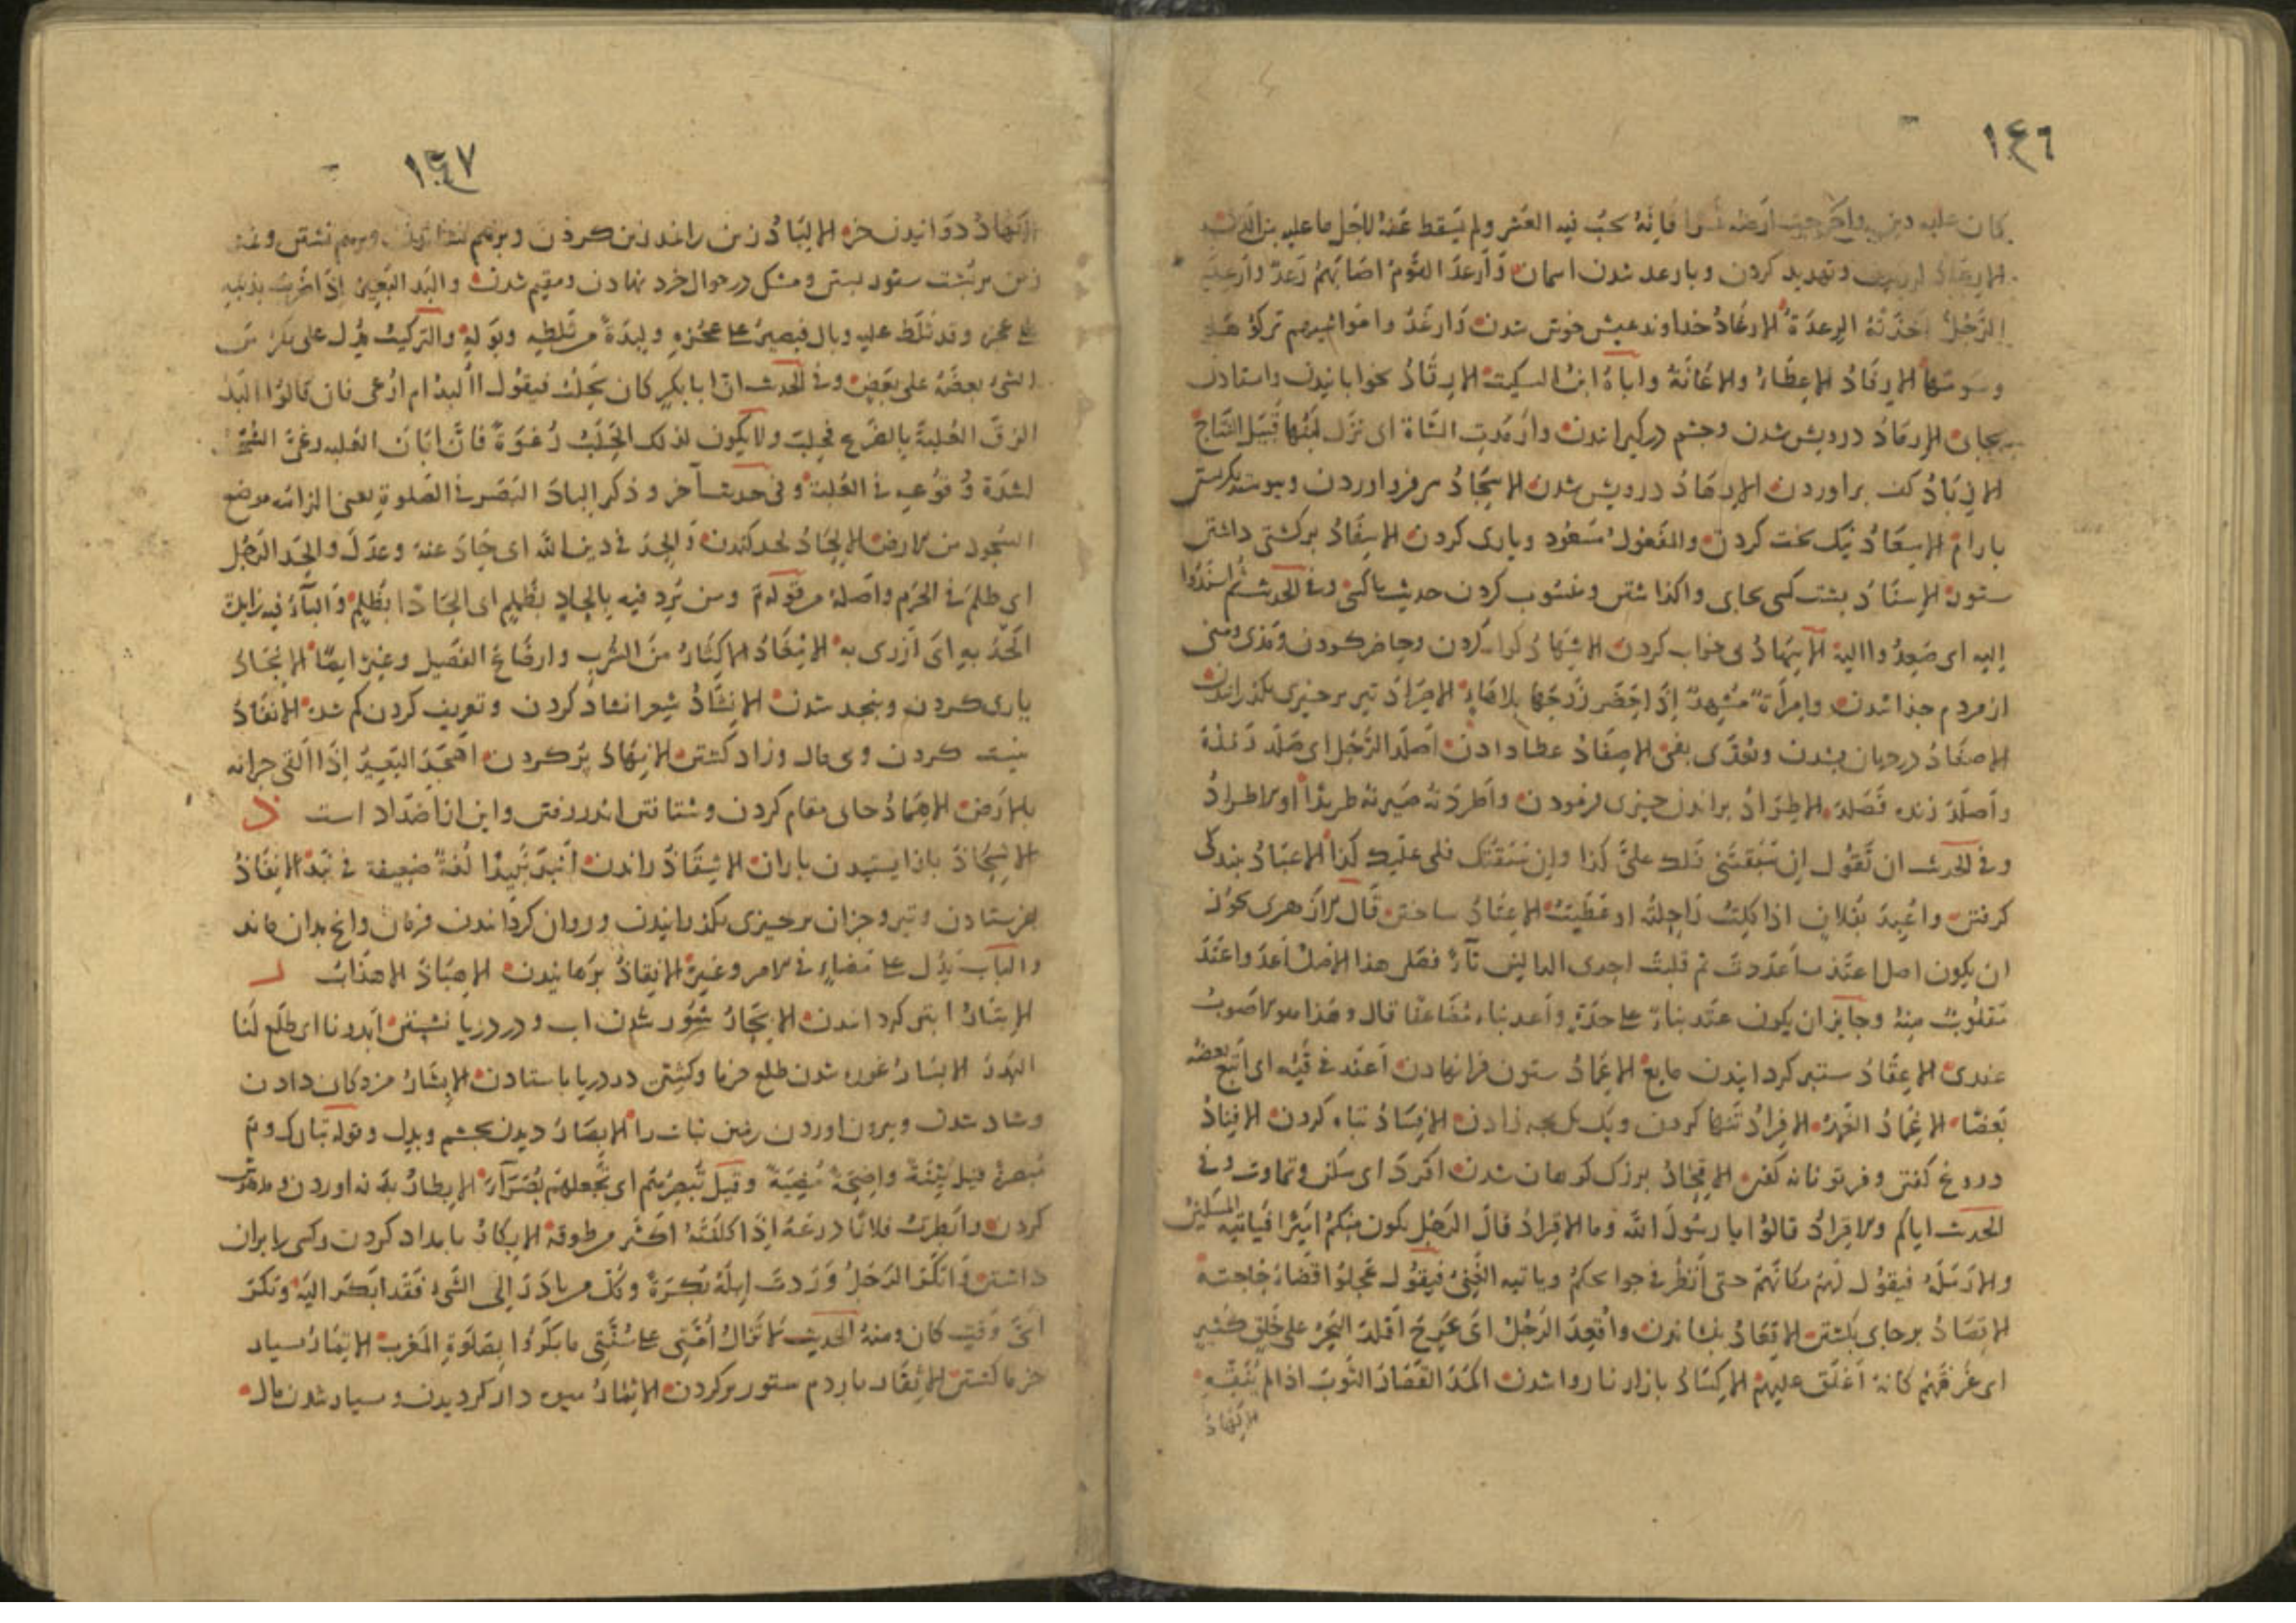 ١٤٦
كان عليه دين فانه يجب فيه العشر ولم يسقط عنه لاجل ما عليه من الدين
وتهديد كردن وبارعد شدن اسمان وارعد القوم اصابهم رعد وارعد
الرجل اخذته الرعدة الارغاد خداوند عيش خوش شدن وارغدوا مواشيهم تركوها
وسومها الارفاد الاعطاء والاعانة واباه ابن السكيت الارقاد بخوابانيدن واستادن
بجاى الارماد درويش شدن وجشم دركيراندن وارمدت الشاة اى نزل لبنها قبيل النتاج
الازباد كف براوردن الازهاد درويش شدن الاسجاد سر فرود اوردن وبيوسته نكرستن
بارام الاسعاد نيك بخت كردن والمفعول مسعود ويارى كردن الاسفاد بركشنى داشتن
ستور الاسناد بشت كسى بجاى واكذاشتن ومنسوب كردن حديث باكسى وفى الحديث ثم اسندوا
اليه اى صعدوا اليه الاسهاد بى خواب كردن الاشهاد كواه كردن وحاضر كردن ومذى ومنى
از مردم جذا شدن وامرأة مشهد اذا حضر زوجها بلا هاء الاصراد تير بر جيزى بكذرانيدن
الاصعاد در جهان بشدن وتعدى بفى الاصفاد عطا دادن اصلد الرجل اى صلد زنده
واصلد زنده فصلد الاطراد براندن جيزى فرمودن واطردته صيرته طريدا او الاطراد
وفى الحديث ان تقول ان سبقتنى فلك على كذا وان سبقتك فلى عليك كذا الاعباد بندكى
كرفتن واعبد بفلان اذا كلت راحلته او عطبت الاعتاد ساختن قال الازهرى يجوز
ان يكون اصل اعتد من اعددت ثم قلبت احدى الدالين تاء فعلى هذا الاصل اعد واعتد
مقلوب منه وجايز ان يكون عتد بناء على حدة واعد بناء مضاعفا قال وهذا هو الاصوب
عندى الاعقاد ستبر كردانيدن مايع الاعماد ستون فرا نهادن اعند فى قيئه اى اتبع بعضه
بعضا الاغماد الغمد الافراد تنها كردن ويك يك بجه زادن الافساد تباه كردن الافناد
دروغ كفتن وفرتوتانه كفتن الاقحاد بزرك كوهان شدن اقرد اى سكن وتماوت وفى
الحديث اياكم والاقراد قالوا يا رسول الله وما الاقراد قال الرجل يكون منكم اميرا فياتيه المسكين
والارملة فيقول لهم مكانكم حتى انظر فى حوايجكم وياتيه الغنى فيقول عجلوا قضاء حاجته
الاقصاد برجاى بكشتن الاقعاد بنشاندن واقعد الرجل اى عرج اقلد البحر على خلق كثير
اى غرقهم كانه اغلق عليهم الاكساد بازار ناروا شدن اكمد القصار الثوب اذا لم ينقه
الاكهاد
١٤٧
الاكهاد دوانيدن خر الالباد زين را نمد زين كردن
زين بر بشت ستور بستن ومشك در جوال خرد نهادن ومقيم شدن والبد البعير اذا ضرب بذنبه
على عجزه وقد ثلط عليه وبال فيصير على عجزه لبدة من ثلطه وبوله والتركيب يدل على تكرس
الشىء بعضه على بعض وفى الحديث ان ابا بكر كان يحلب فيقول أألبد ام ارغى فان قالوا البد
الزق العلبة بالضرع فيحلب ولا يكون لذلك الحلب رغوة فان ابان العلبه رغى الشخب
لشدة وقوعه فى العلبة وفى حديث آخر وذكر الباد البصر فى الصلوة يعنى الزامه موضع
السجود من الارض الالحاد لحد كندن والحد فى دين الله اى حاد عنه وعدل والحد الرجل
اى ظلم فى الحرم واصله من قوله تم ومن يرد فيه بالحاد بظلم اى الحادا بظلم والباء فيه زايدة
الحد به اى ازرى به الامغاد الاكثار من الشرب وارضاع الفصيل وغيره ايضا الانجاد
يارى كردن وبنجد شدن الانشاد شعر انشاد كردن وتعريف كردن كم شده الانفاد
نيست كردن وبى مال وزاد كشتن الانهاد بر كردن اهجد البعير اذا القى جرانه
بالارض الاهماد جاى مقام كردن وشتافتن اندر رفتن واين از اضداد است ذ
الاشجاذ باز ايستيدن باران الاشقاذ راندن انبذ نبيذا لغة ضعيفة فى نبذ الانفاذ
بفرستادن وتير وجزان بر جيزى بكذرانيدن وروان كردانيدن فرمان وانج بدان ماند
والباب يدل على مضاء فى الامر وغيره الانقاذ برهانيدن الاهباذ الاهذاب ر
الابتار ابتر كردانيدن الابحار شور شدن اب ودر دريا نشستن ابدرنا اى طلع لنا
البدر الابسار غوره شدن طلع خرما وكشتى در دريا باستادن الابشار مزدكان دادن
وشاد شدن وبيرون اوردن زمين نبات را الابصار ديدن بجشم وبدل وقوله تبارك وتم
مبصرة قيل بينة واضحة مضيئة وقيل تبصرهم اى تجعلهم بصراء الابطار بدنه اوردن
كردن وابطرت فلانا ذرعه اذا كلفته اكثر من طوقه الابكار بامداد كردن وكسى را بران
داشتن وابكر الرجل وردت ابله بكرة وكل من بادر الى الشىء فقد ابكر اليه وبكر
اى وقت كان ومنه الحديث لا تزال امتى على سنتى ما بكروا بصلوة المغرب الاتمار بسيار
خرما كشتن الاثفار باردم ستور بر كردن الاثمار ميوه دار كرديدن وبسيار شدن مال